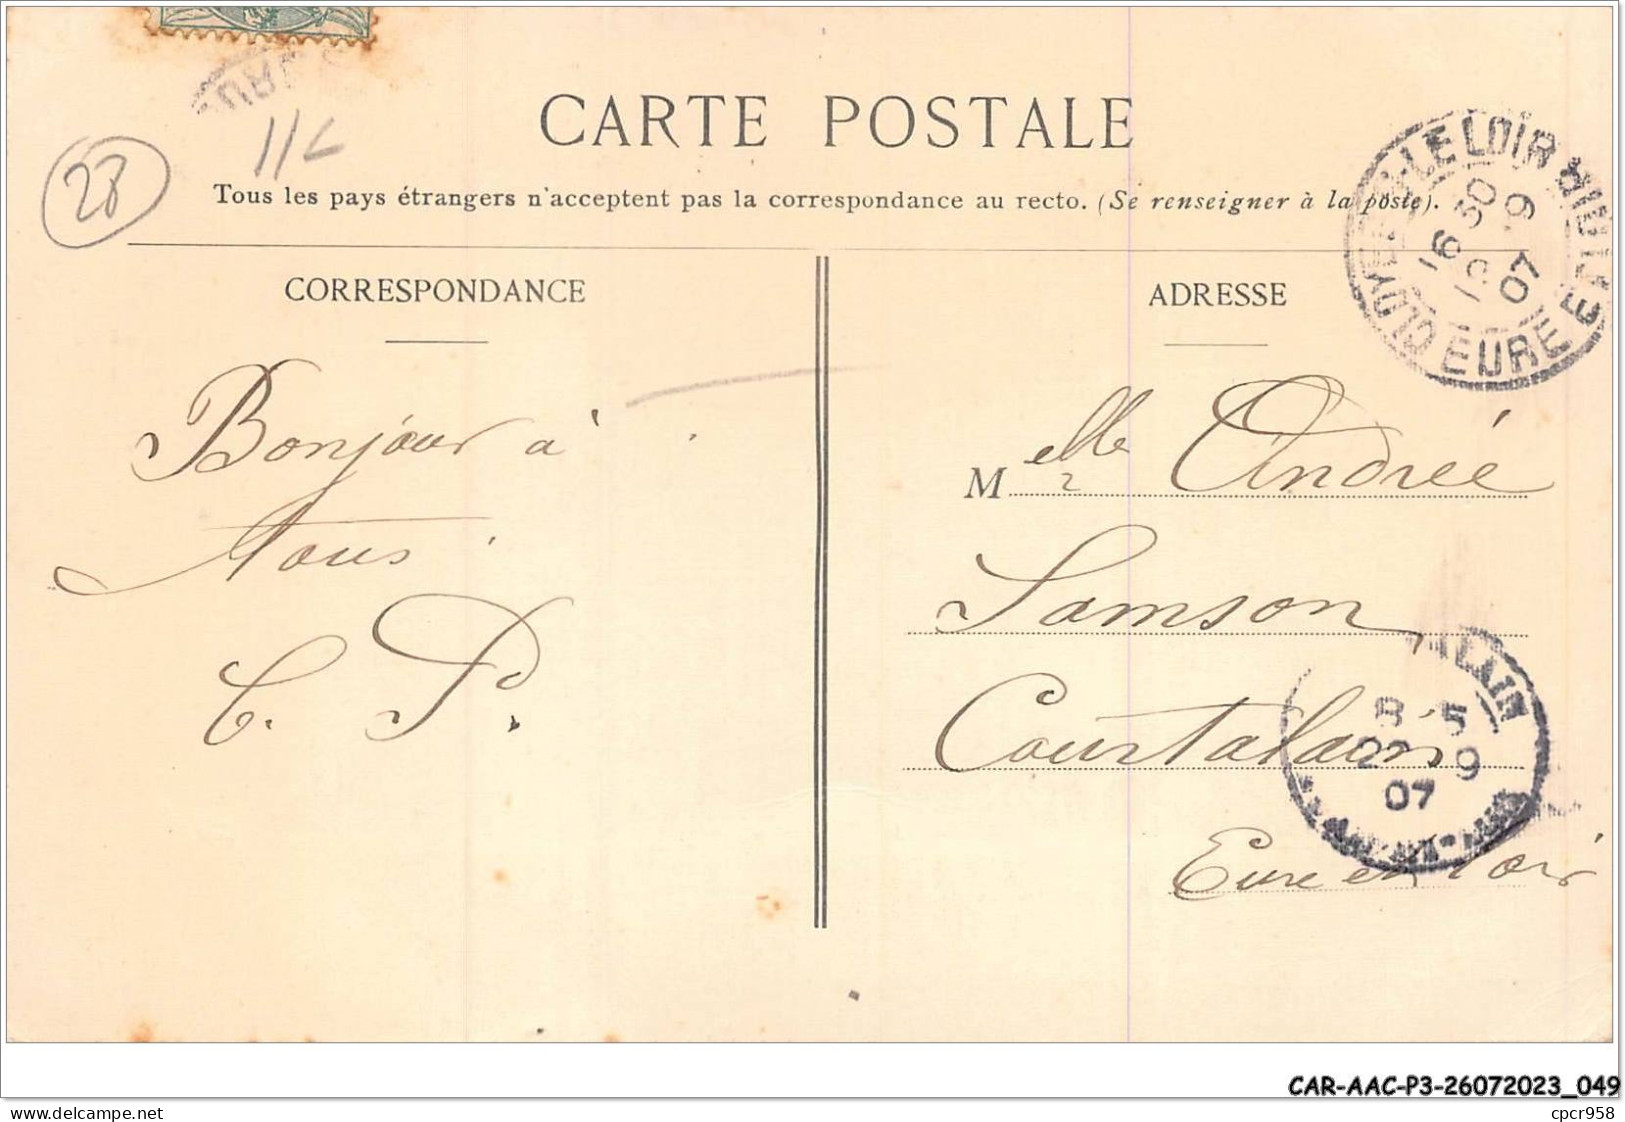 28
CARTE POSTALE
Tous les pays étrangers n'acceptent pas la correspondance au recto. (Se renseigner à la poste).
CORRESPONDANCE
Bonjour à
tous
C. P.
ADRESSE
Melle Andrée
Samson
Courtalain
Eure et Loir
CLOYES-S-LE LOIR
EURE ET LOIR
16 30
19 9
07
TALAIN
8 15
20 9
07
CAR-AAC-P3-26072023_049
delcampe.net
cpcr958